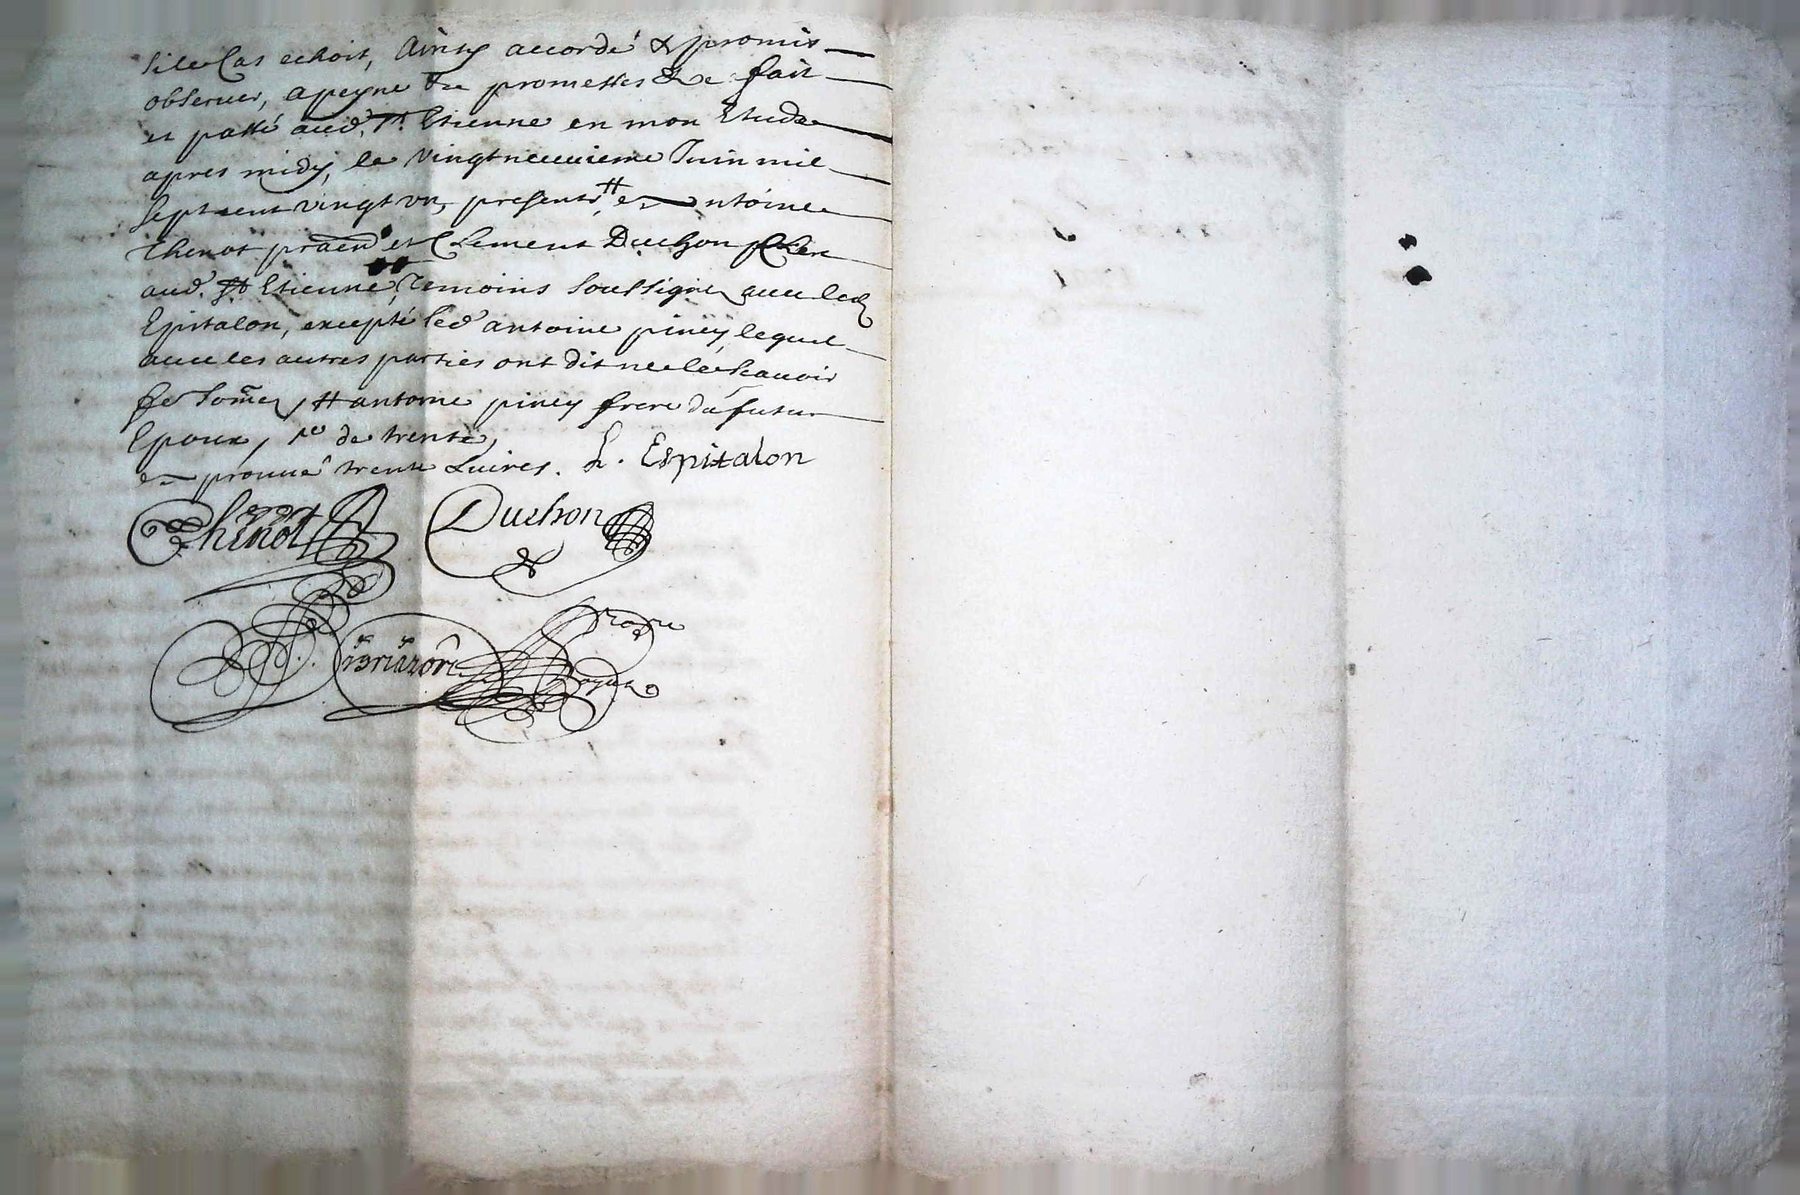 si le Cas echoit, Ainsy accordé & promis
observer, a peyne de promesses &c fait
et passé aud. St. Etienne en mon Etude
apres midy, le vingtneuvieme Juin mil
sept cent vingt un, presents # Antoine
Thenot praend et Clement Duchon Clerc
aud. St Etienne, Temoins soussignes avec led
Epitalon, excepté led antoine piney, lequel
avec les autres parties ont dit ne le sçavoir
de some, # antoine piney frere du futur
Epoux, de trente,
approuvé trente Livres. L. Espitalon
Thenot Duchon